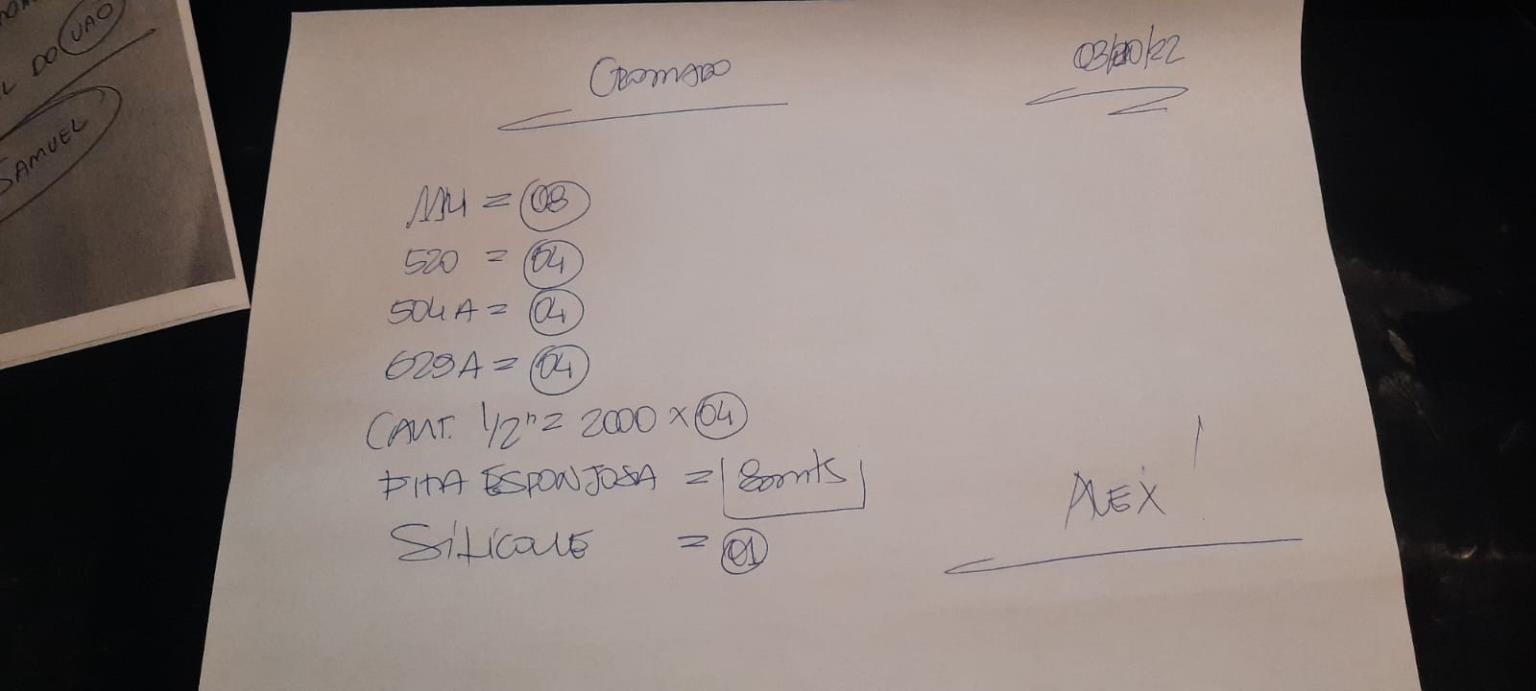 DO VAO
SAMUEL
CROMADO
03/10/22
1114 = 08
520 = 04
504A = 04
629A = 04
CANT. 1/2" = 2000 x 04
FITA ESPONJOSA = 80mts
SiLiCONE = 01
ALEX